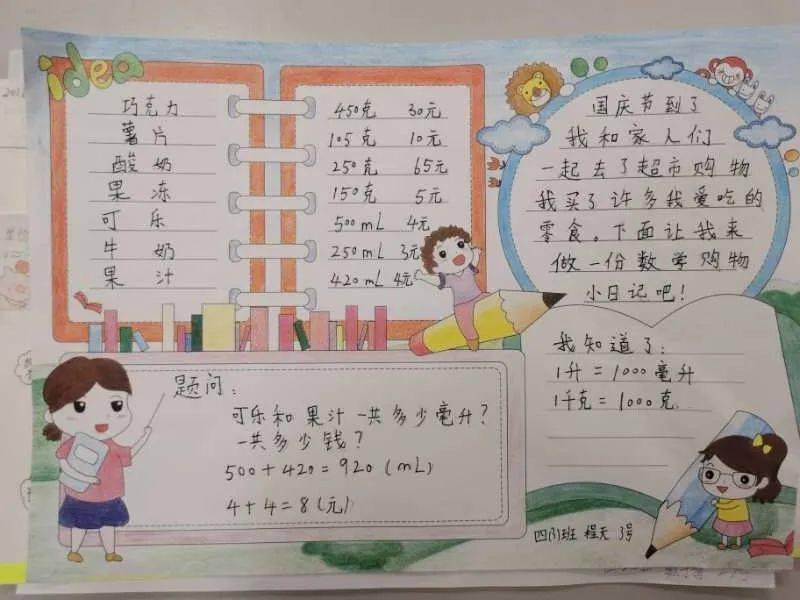 idea
巧克力 450克 30元
薯片 105克 10元
酸奶 250克 65元
果冻 150克 5元
可乐 500mL 4元
牛奶 250mL 3元
果汁 420mL 4元
国庆节到了
我和家人们
一起去了超市购物
我买了许多我爱吃的
零食。下面让我来
做一份数学购物
小日记吧!
题问:
可乐和果汁一共多少毫升?
一共多少钱?
500+420=920(mL)
4+4=8(元)
我知道了:
1升=1000毫升
1千克=1000克
3号